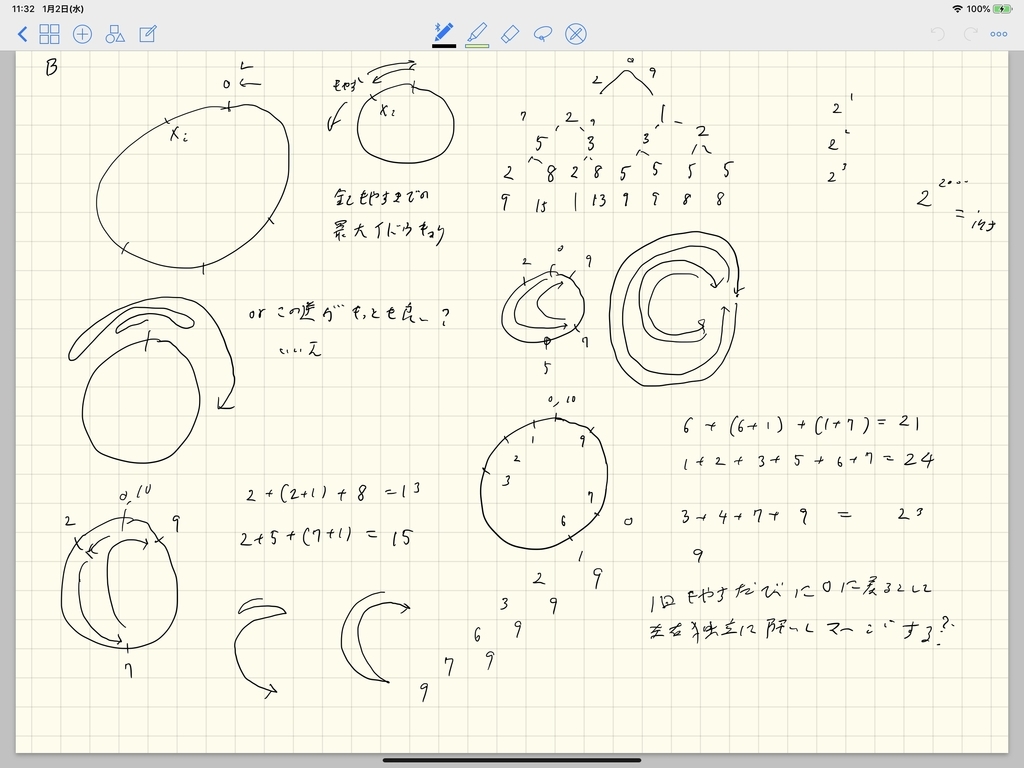 11:32 1月2日(水)
100%
B
L
0 ←
Xi
もやす
Xi
全てもやすまでの
最大イドウキョリ
0
2 9
7 2 9 1
5 3 3 2
2 8 2 8 5 5 5 5
9 15 1 13 9 9 8 8
2^1
2^2
2^3
or この逆がもっとも良い?
いいえ
2 0 9
7
5
0, 10
1 9
2
3
7
6
6 + (6+1) + (1+7) = 21
1 + 2 + 3 + 5 + 6 + 7 = 24
3 + 4 + 7 + 9 = 23
9
1回もやすたびに0に戻るとして
左右独立に解いてマージする?
0, 10
2 9
7
2 + (2+1) + 8 = 13
2 + 5 + (7+1) = 15
0
1
2 9
3 9
6 9
7 9
9